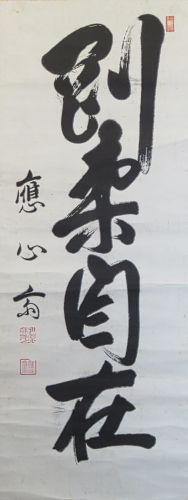 剛柔自在
應心翁